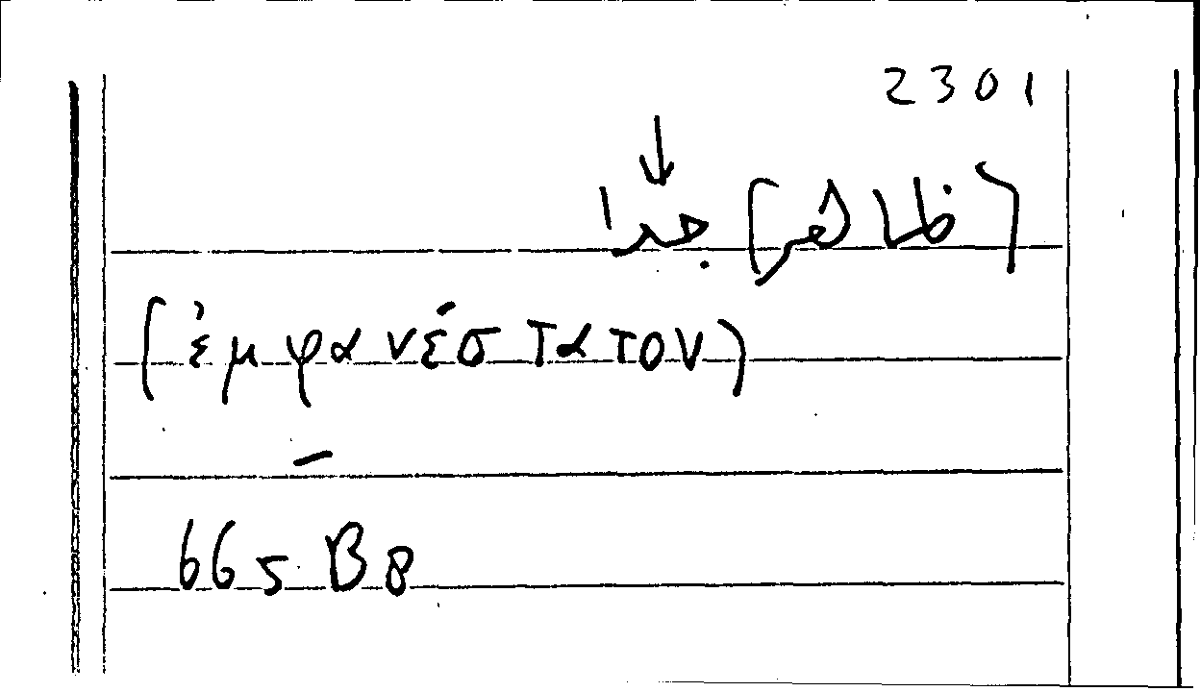 2301
↓
(ظاهر) جدا
(ἐμφανέστατον)
–
665 B 8